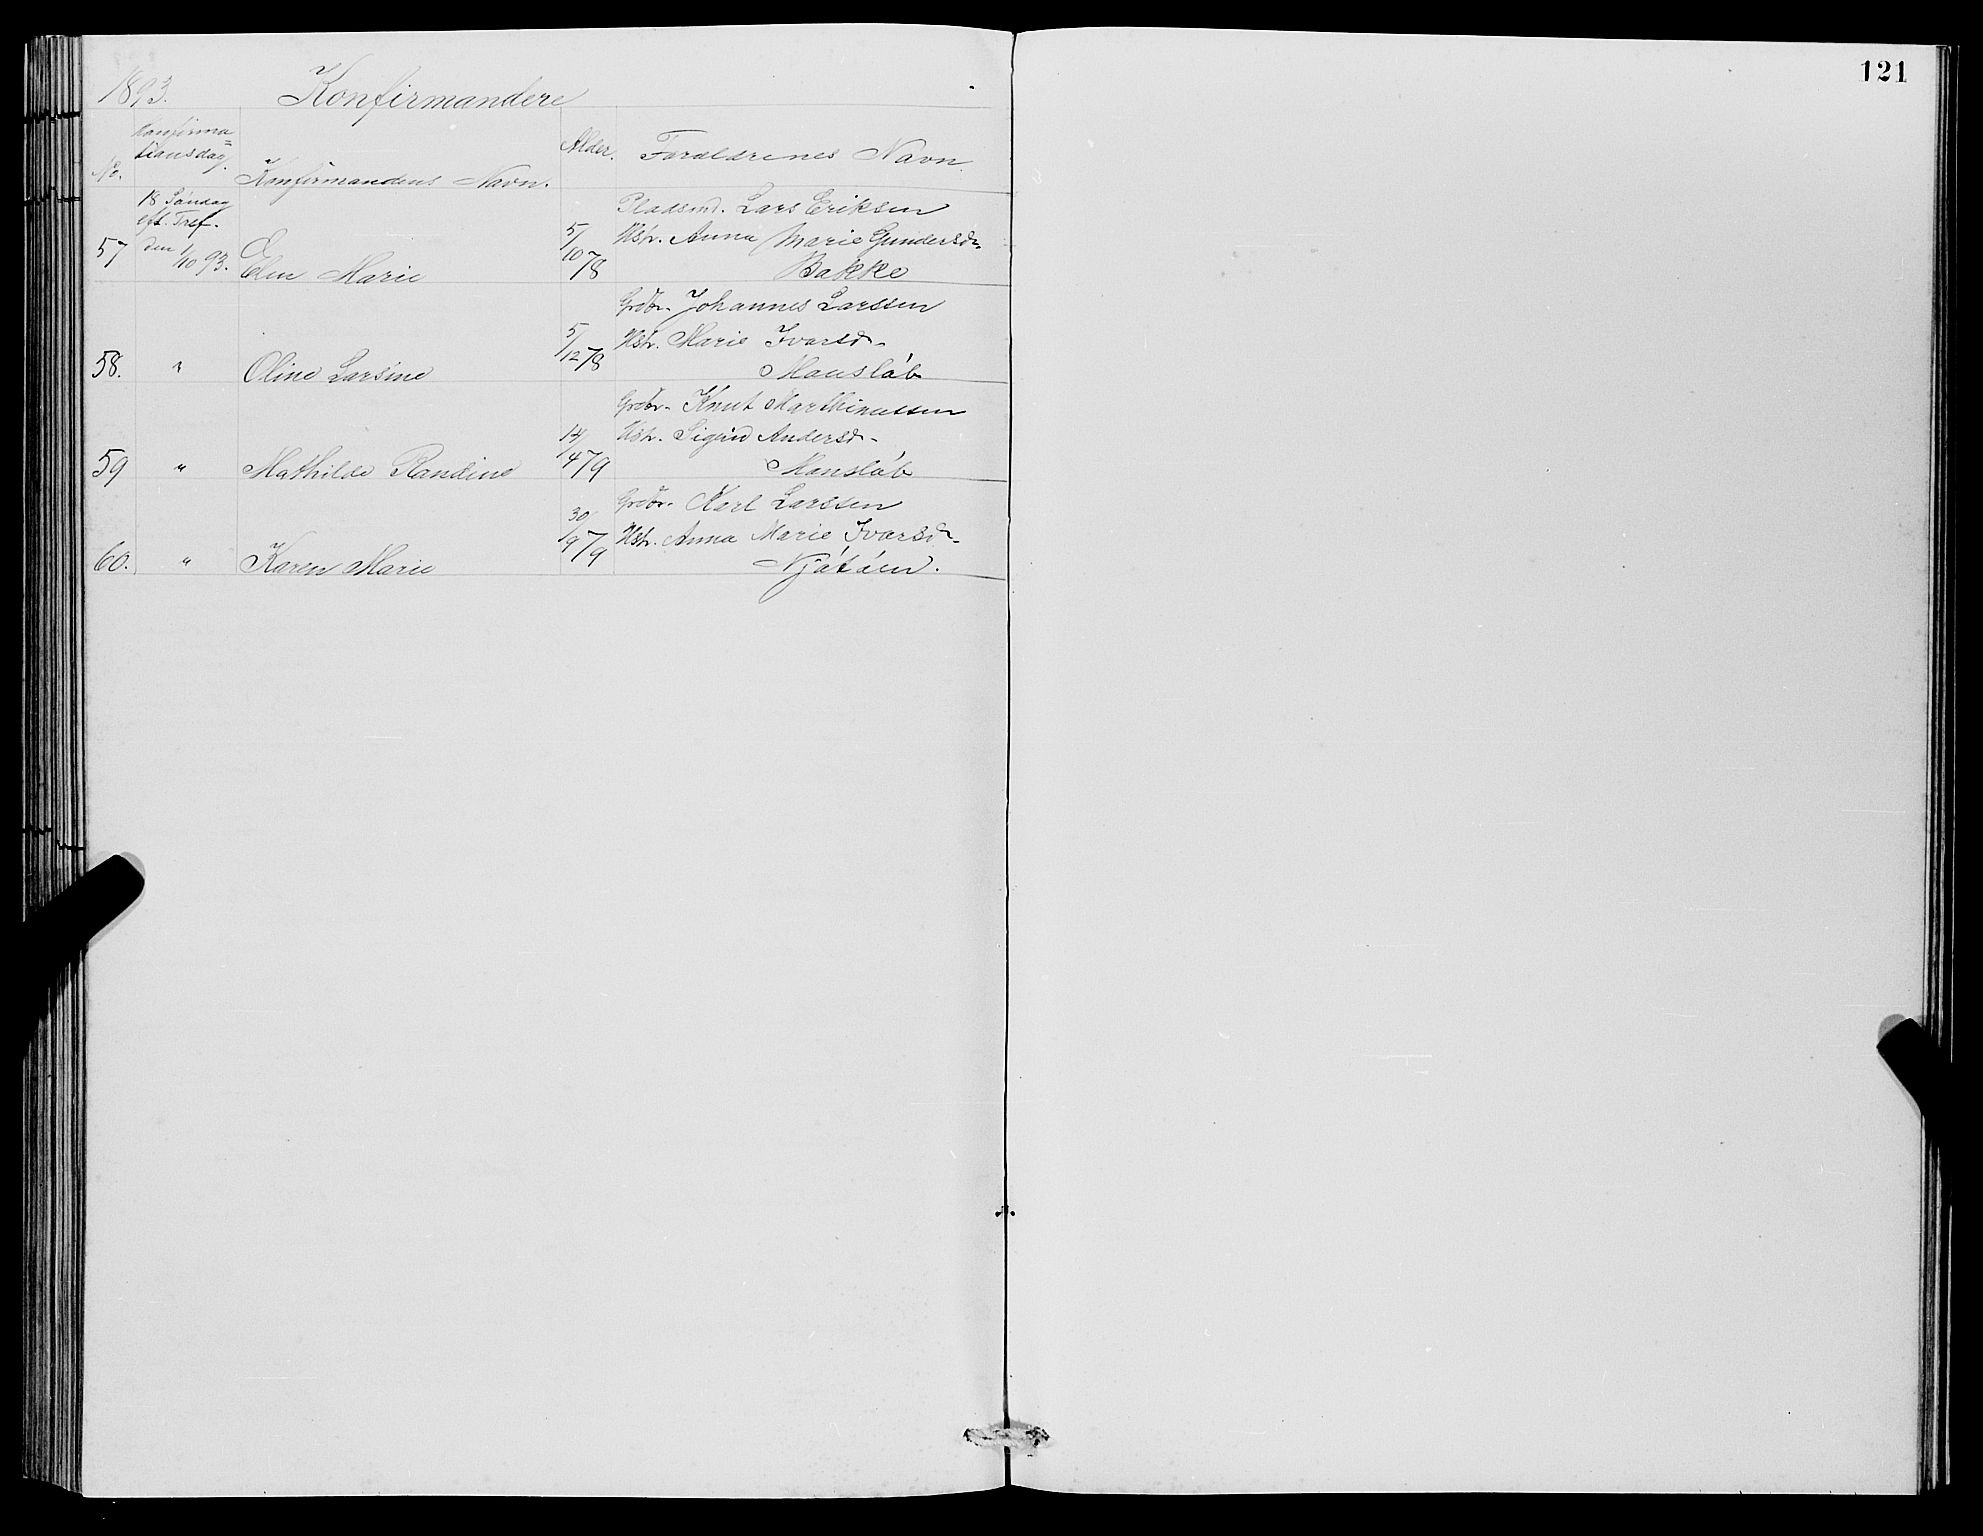 121
1893. Konfirmandere
No. Konfirma= Konfirmandens Navn. Alder. Forældrenes Navn
tionsdag.
18 Søndag Pladsmd. Lars Eriksen
eft. Tref. 5/ Hstr. Anna Marie Gundersdr.
57 den 1/10 93. Elen Marie 10 78 Bakke
Grdbr. Johannes Larssen
5/ Hstr. Marie Ivarsdr.
58. " Oline Larsine 12 78 Mausláb
Grdbr. Knut Marthinussen
14/ Hstr. Sigrid Andersdr.
59 " Mathilde Randine 4 79 Mausláb
Grdbr. Karl Larssen
30/ Hstr. Anna Marie Ivarsdr.
60. " Karen Marie 9 79